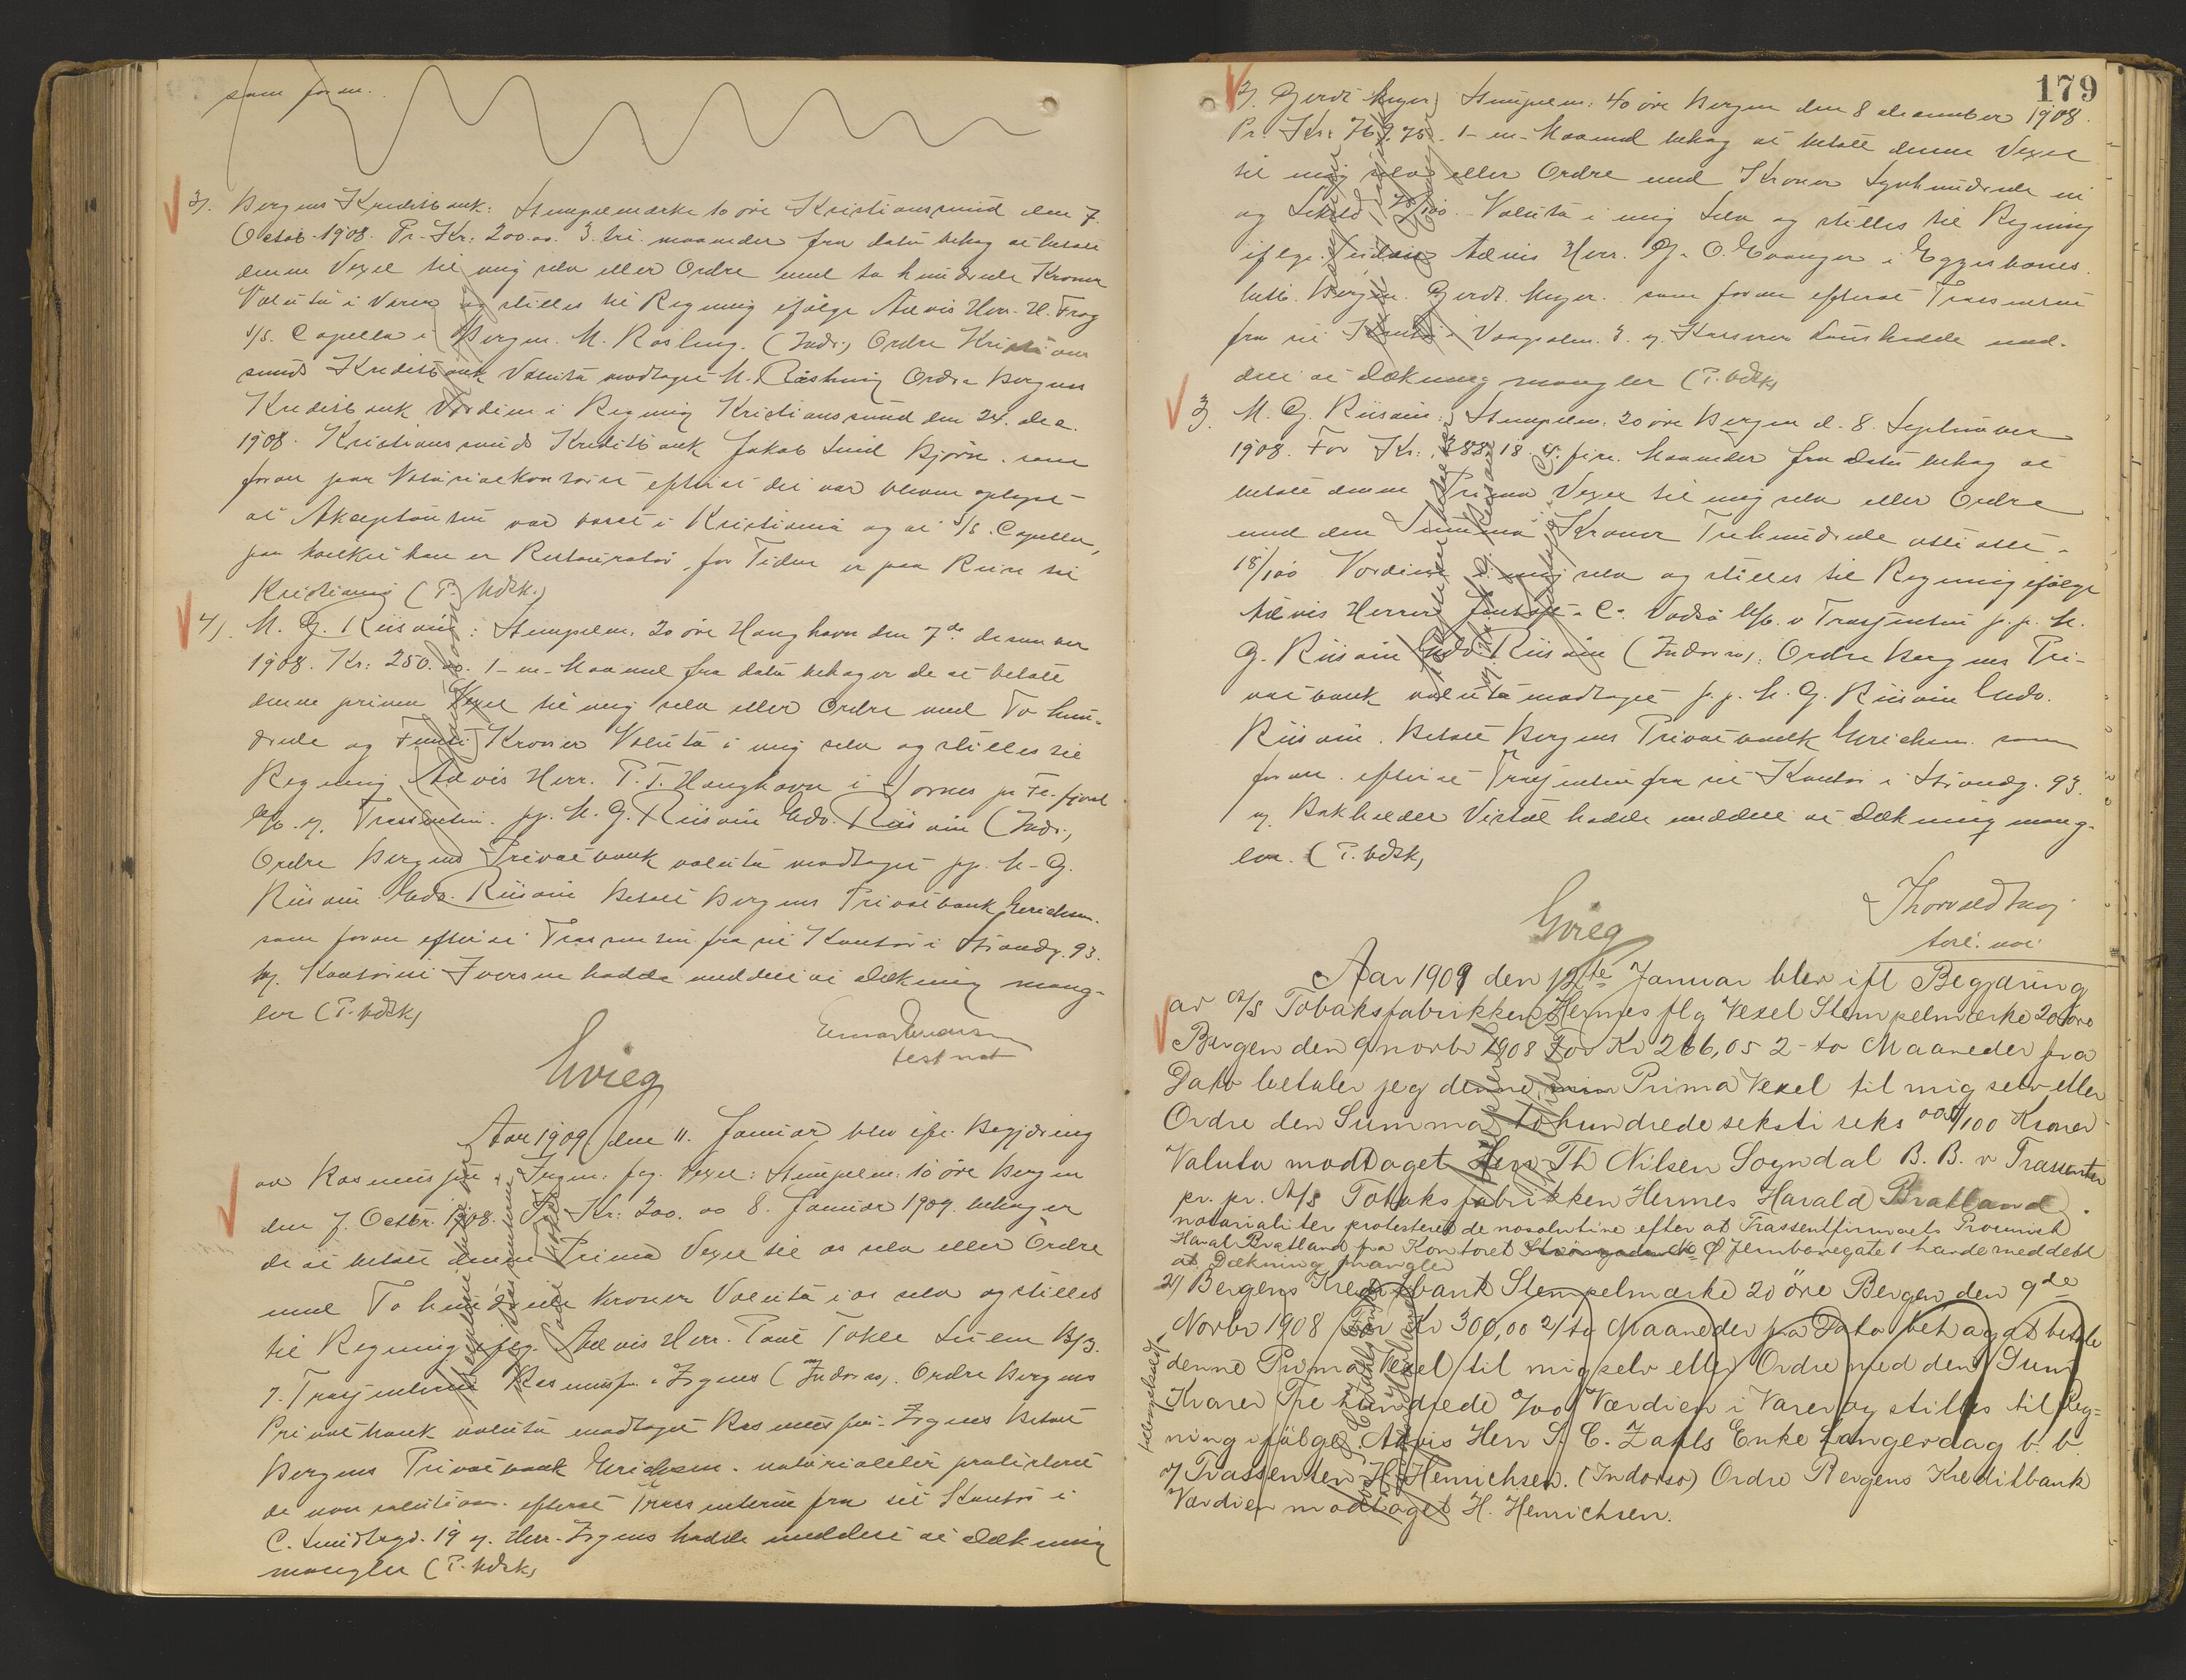 som foran.
3). Bergens Kreditbank: Stempelmærke 10 øre Kristianssund den 7.
Octob. 1908. Pr. Kr: 200.00. 3. tre maaneder fra dato behag at betale
denne Vexel til mig selv eller Ordre med to hundrede Kroner
Valuta i Varer og stilles til Regning ifølge Advis Herr. H. Frog
S/S. Capella i Bergen. M. Rosling. (Indr.) Ordre Kristians
sunds Kreditbank Valuta modtaget M. Rosling Ordre Bergens
Kreditbank Værdien i Regning Kristianssund den 24. dec.
1908. Kristianssunds Kreditbank Jakob Smid Bjørn. som
foran paa Notarialkontoret efterat det var bleven oplyst
at Akceptanten var reist i Kristiania og at S/S. Capella,
paa hvilket han er Restauratør, for Tiden er paa Reise til
Kristiania (P. Udsk.)
4). M. G. Riisøin: Stempelm. 20 øre Hanghavn den 7de december
1908. Kr: 250.00. 1- en- Maaned fra dato behager de at betale
denne prima Vexel til mig selv eller Ordre med To hun-
drede og Femti Kroner Valuta i mig selv og stilles til
Regning Advis Herr. P. T. Hanghavn i
B/B. y. Trassenten. pp. M. G. Riisøin Edv. Riisøin (Indr.,
Ordre Bergens Privatbank valuta modtaget pp. M. G.
Riisøin Edv. Riisøin Betalt Bergens Privatbank Erichsen.
som foran efter at Trassenten fra sit Kontor i Strandg. 93.
y. Kontorist Iversen hadde meddelt at dækning mang-
ler (P. Udsk,
test not
Grieg
Aar 1909 den 11. Januar blev ifl. Begjæring
av Rasmussen & Zigm: flg. Vexel: Stempelm: 10 øre Bergen
den 7. Octbr. 1908. Pr. Kr: 200.00 8. Januar 1909. behager
de at betale denne Prima Vexel til os selv eller Ordre
med To hundrede Kroner Valuta i os selv og stilles
til Regning iflg. Advis Herr. Paul Tokle B/B.
y. Trassenterne Rasmussen & Zigens (Indorso). Ordre Bergens
Privatbank valuta modtaget Rasmussen & Zigens Betalt
Bergens Privatbank Erichsen. notarialiter protesteret
de non solutione. efterat Trassenterne fra sit Kontor i
C. Sundtsgd. 19 y. Herr. Zigens hadde meddelt at dækning
mangler (P. Udsk,
179
3). Gerdt Meyer Stempelm: 40 øre Bergen den 8 december 1908.
Pr. Kr: 769.75. 1- en- Maaned behag at betale denne Vexel
til mig selv eller Ordre med Kroner Syvhundrede ni
og Seksti 75/100. Valuta i mig Selv og stilles til Regning
iflge. uden Advis Herr. G. O. Evanger i Eggesbones.
betb. Bergen. Gerdt Meyer. som foran efterat Trassenten
fra sit Kontor i Vaagsalm. 3. y. Kasserer hadde med-
delt at dækning mangler (P. Udsk,
3. M. G. Riisøin: Stempelm: 20 øre Bergen d. 8. September
1908. For Kr: 388.18 4. fire. Maaneder fra dato behag at
betale denne Prima Vexel til mig selv eller Ordre
med den Summa Kroner Trehundrede otti otte
18/100 Værdien i mig selv og stilles til Regning ifølge
Advis Herrer & Co Vadsø B/B. v Trassenten p. p. M.
G. Riisøin Edv Riisøin (Indorso): Ordre Bergens Pri-
vatbank valuta modtaget p. p. M. G. Riisøin Edv.
Riisøin. Betalt Bergens Privatbank Erichsen. som
foran. efterat Trassenten fra sit Kontor i Strandg. 93.
y. Bokholder Vistal hadde meddelt at dækning mang-
ler. (P. Udsk,
Grieg
test. not.
Aar 1909 den 12te Januar blev ifl Begjæring
av A/S Tobaksfabrikken Hermes flg Vexel Stempelmærke 20 øre
Bergen den 9 novbr 1908 For Kr 266,05 2- to Maaneder fra
Dato betaler jeg denne min Prima Vexel til mig selv eller
Ordre den Summa to hundrede seksti seks 005/100 Kroner
Valuta modtaget Herr Th Nilsen Sogndal B. B. v Trassenten
pr. pr. A/S Tobaksfabrikken Hermes Harald Bratland
notarialiter protesteret de nosolutine efter at Trassentfirmaets Procurist
Haral Bratland fra Kontoret Ø Jernbanegate 1 havde meddelt
at Dækning mangler
2) Bergens Kreditbank Stempelmærke 20 öre Bergen den 9de
Novbr 1908 For Kr 300,00 2/ to Maaneder fra Dato behag at betale
denne Prima Vexel til mig selv eller Ordre med den Sum
Kroner Tre Hundrede 0/00 Værdien i Varer og stilles til Reg=
ning ifølge Advis Herr S. C. Zahls Enke Langerdag b. b.
v/ Trassenten H. Henrichsen. (Indorso) Ordre Bergens Kreditbank
Værdien modtaget H. Henrichsen.